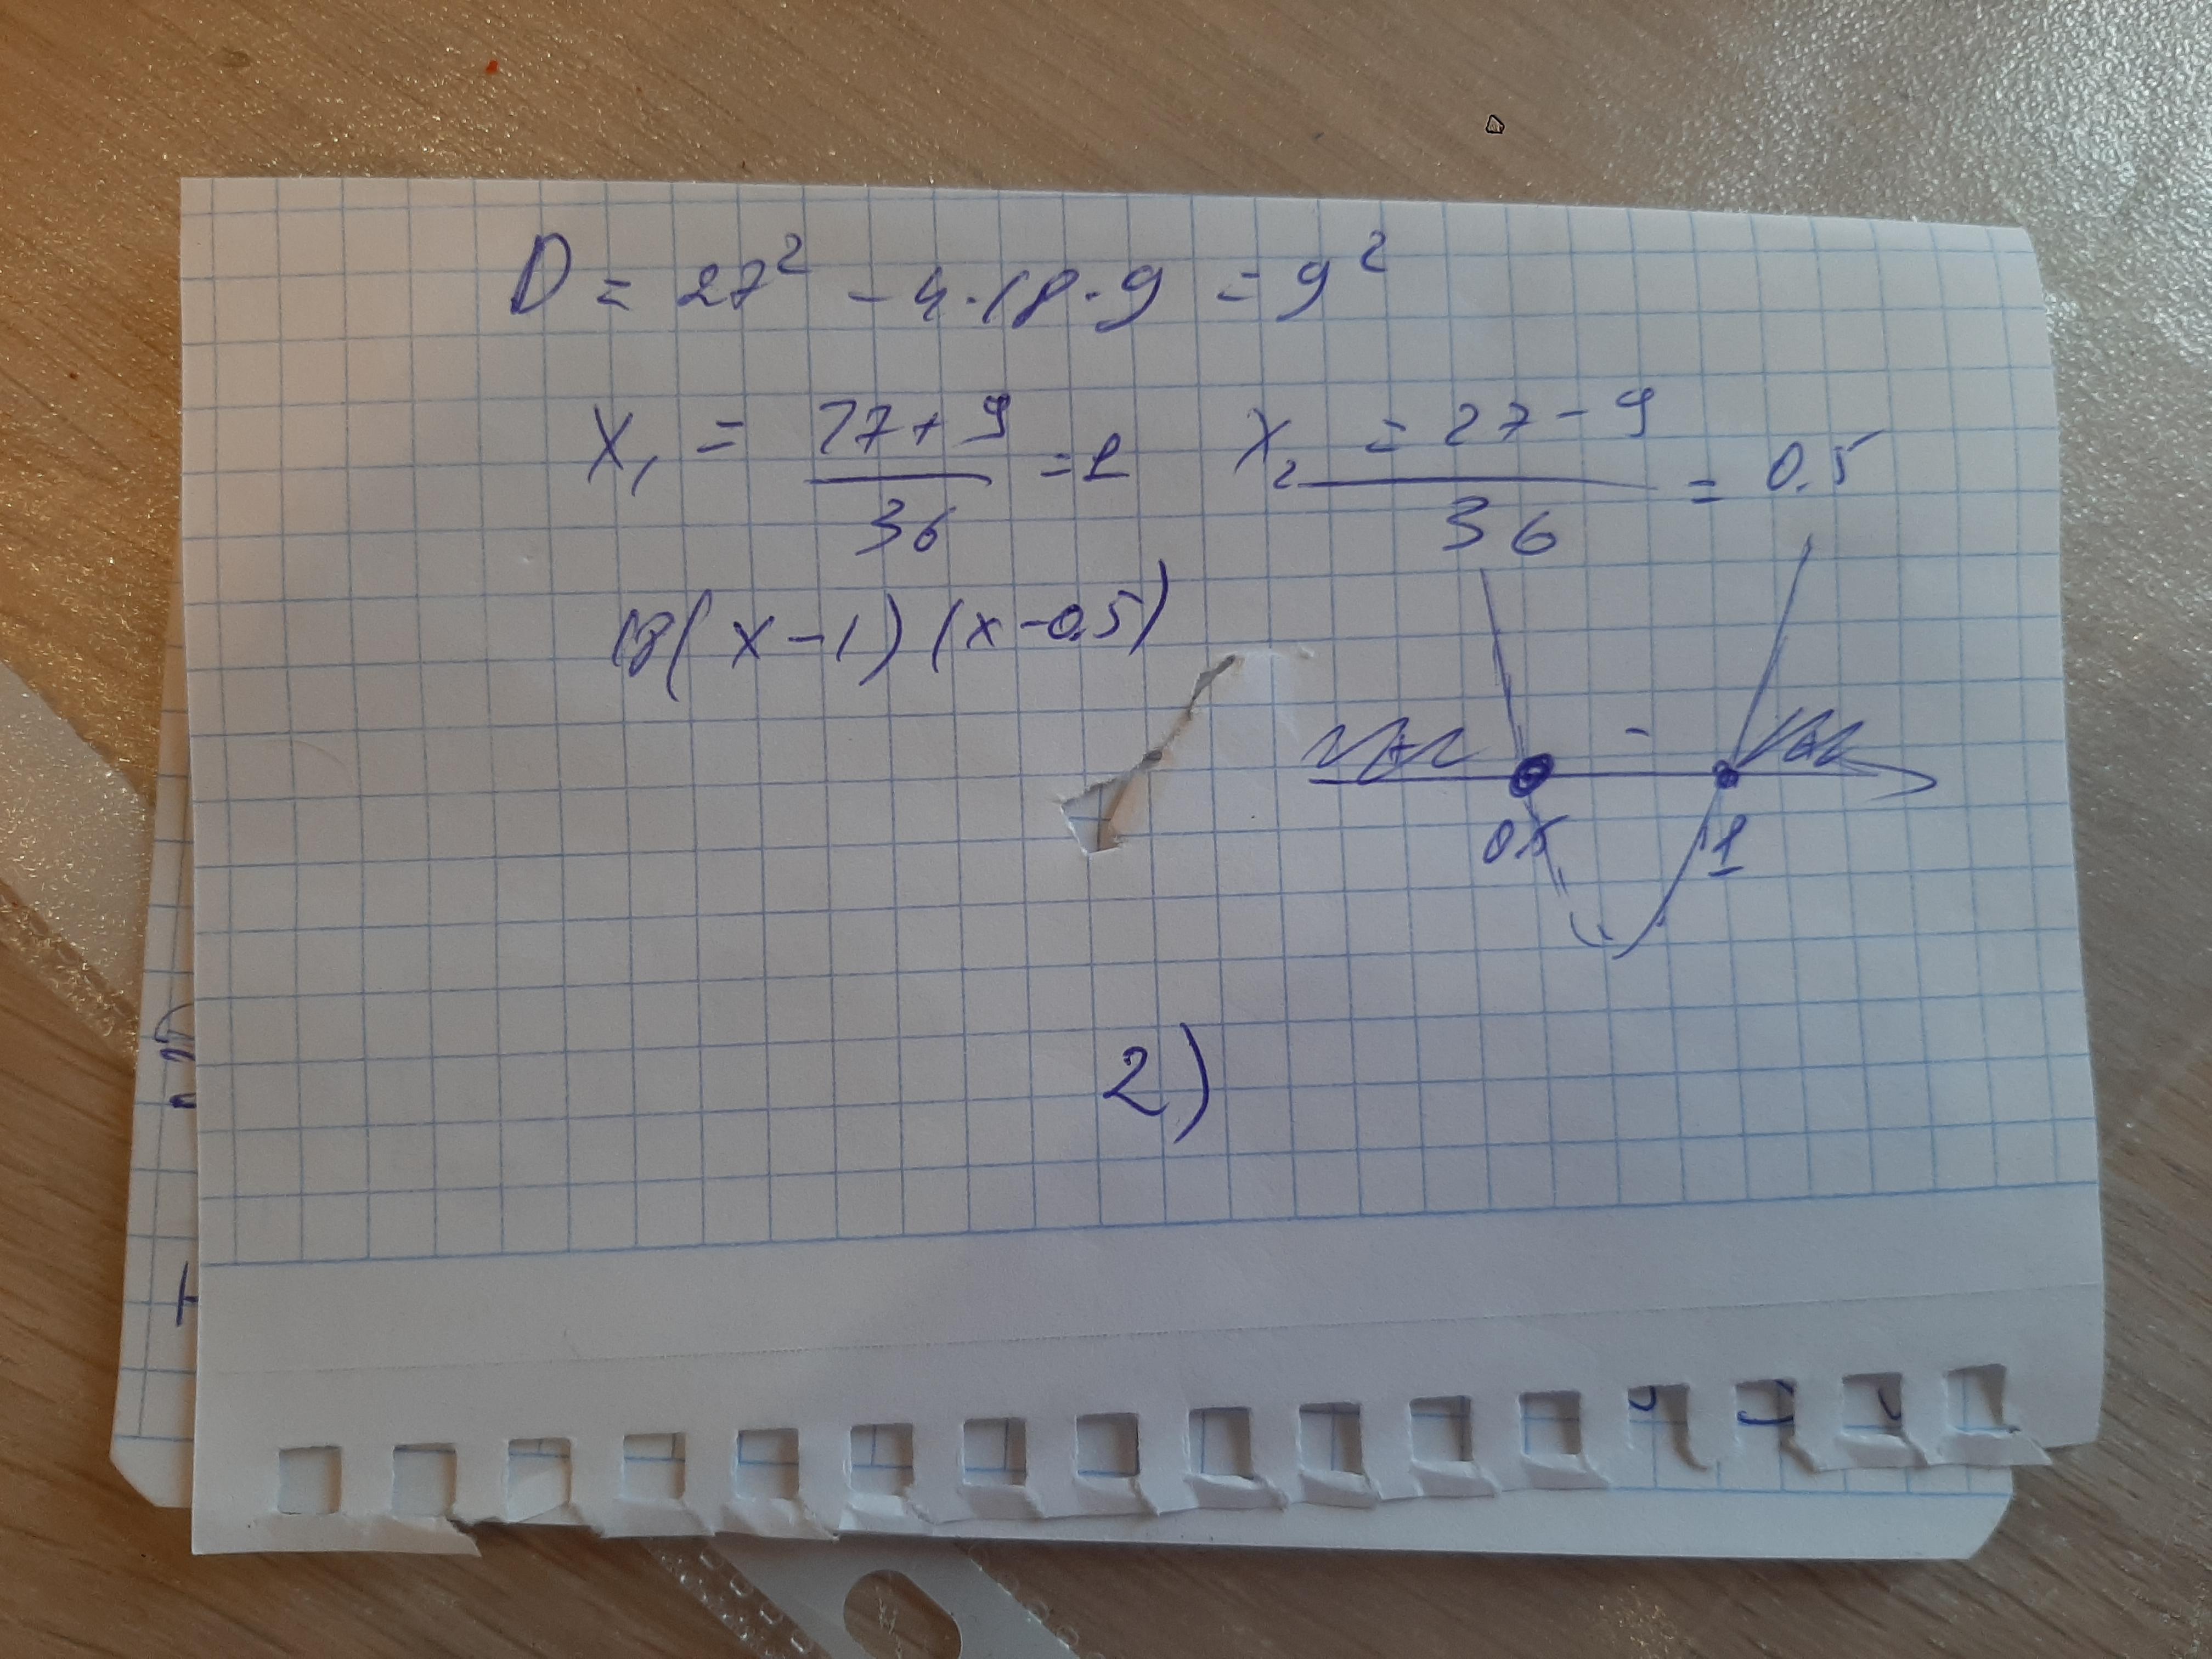 D = 27² - 4·18·9 = 9²
x₁ = 27+9/36 = 1 x₂ = 27-9/36 = 0.5
18(x-1)(x-0.5)
+ - +
0.5 1
2)